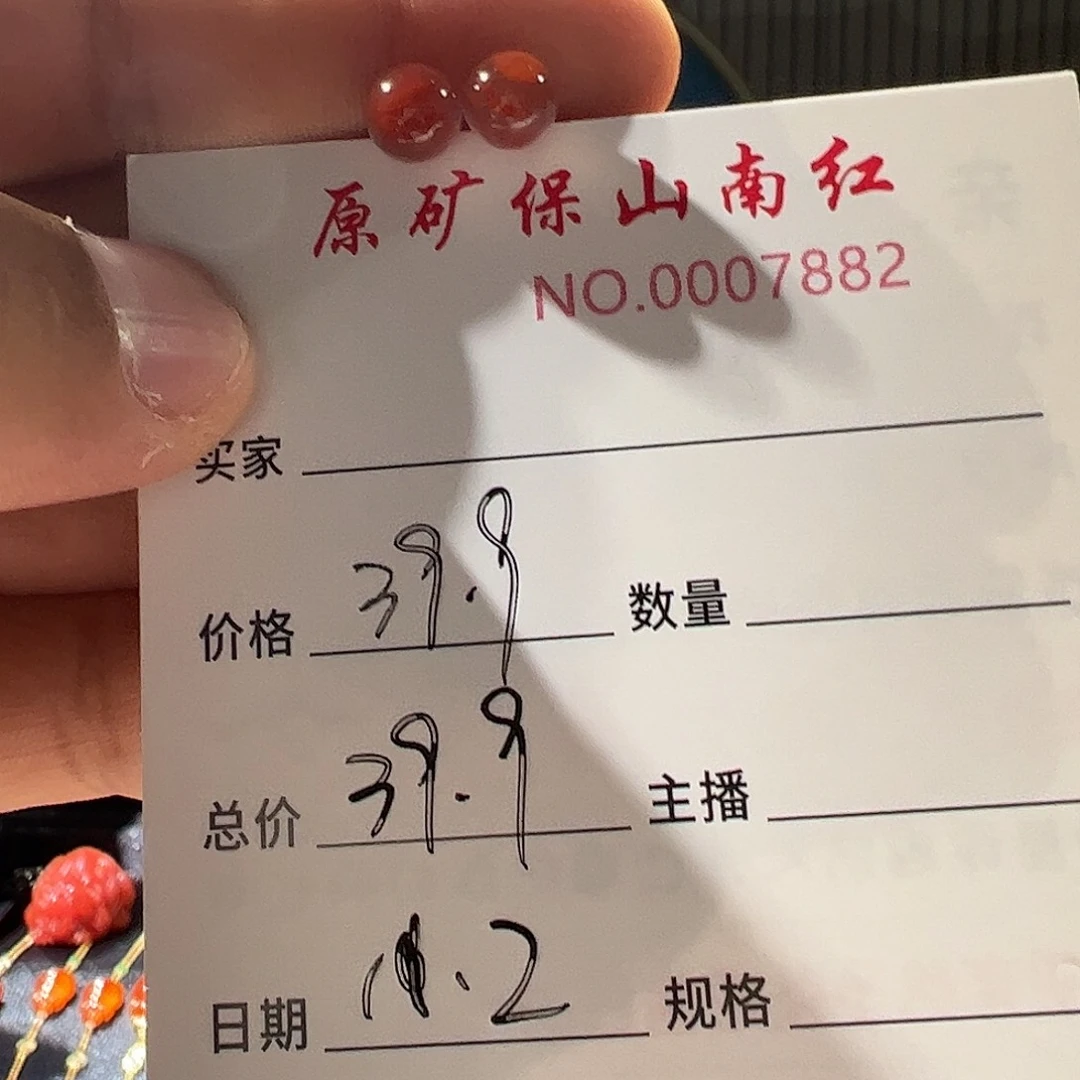 原矿保山南红
NO.0007882
买家
价格 39.9 数量
总价 39.9 主播
日期 11.2 规格